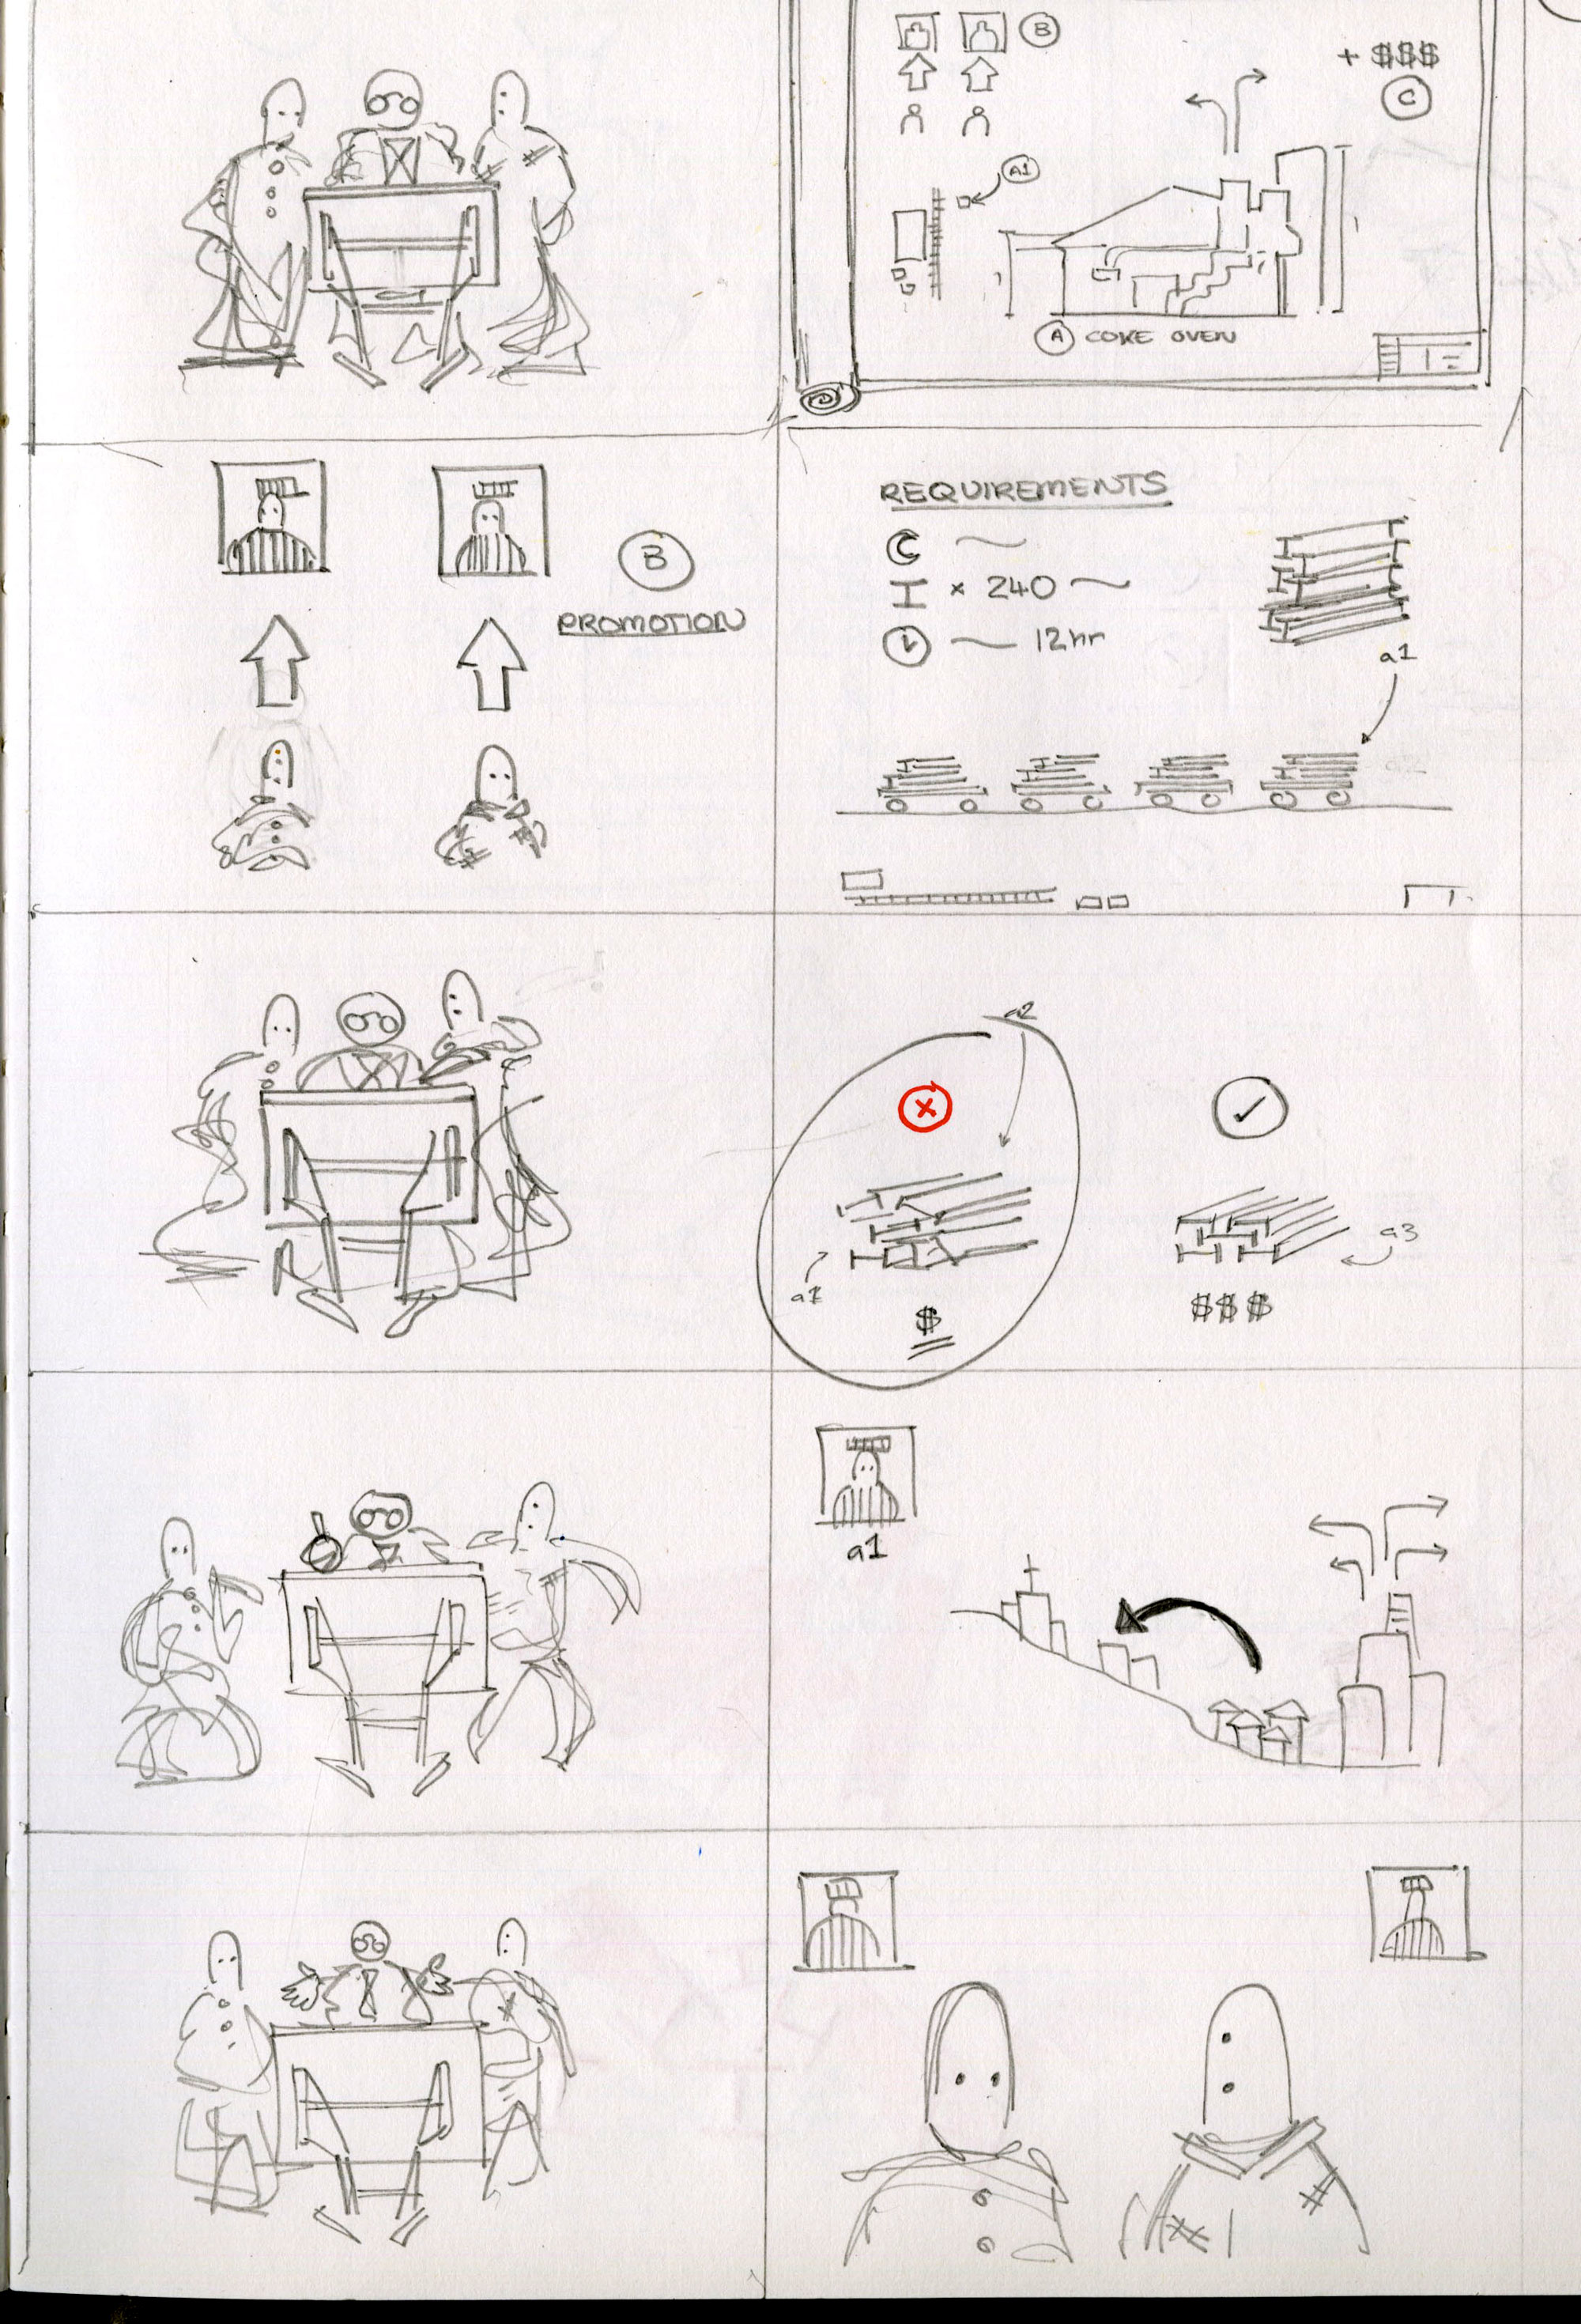 B
+ $$$
C
A1
A COKE OVEN
B
PROMOTION
REQUIREMENTS
C
I x 240
12hr
a1
a2
a1
$
a3
$$$
a1